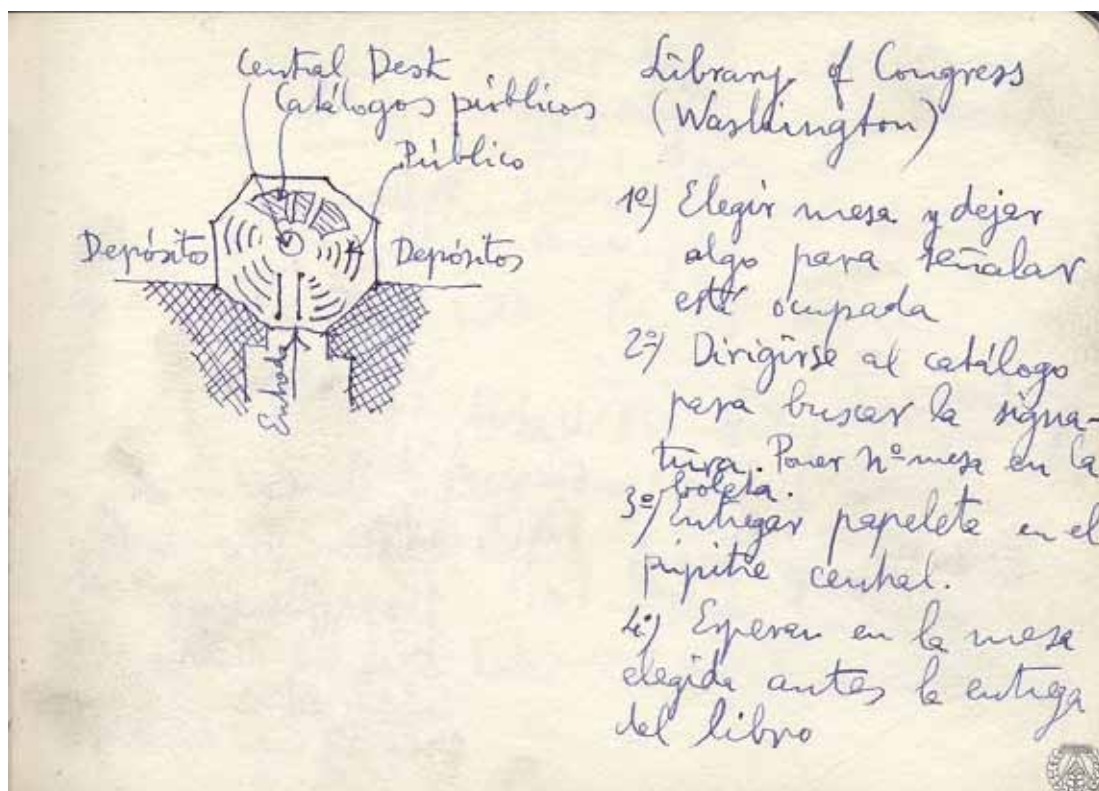 Central Desk
Catálogos públicos
Público
Depósitos
Depósitos
Entrada
Library of Congress
(Washington)
1º) Elegir mesa y dejar
algo para señalar
está ocupada
2º) Dirigirse al catálogo
para buscar la signa-
tura. Poner nº mesa en la
boleta.
3º) Entregar papeleta en el
pupitre central.
4º) Esperar en la mesa
elegida antes la entrega
del libro